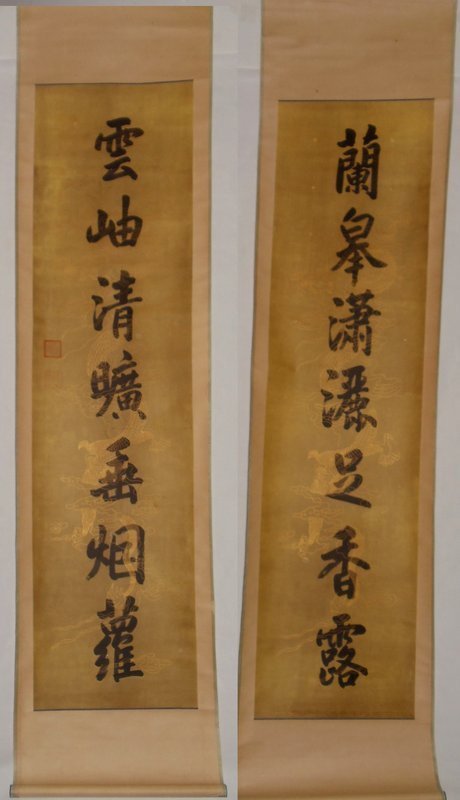 蘭皋瀟灑足香露
雲岫清曠垂烟蘿